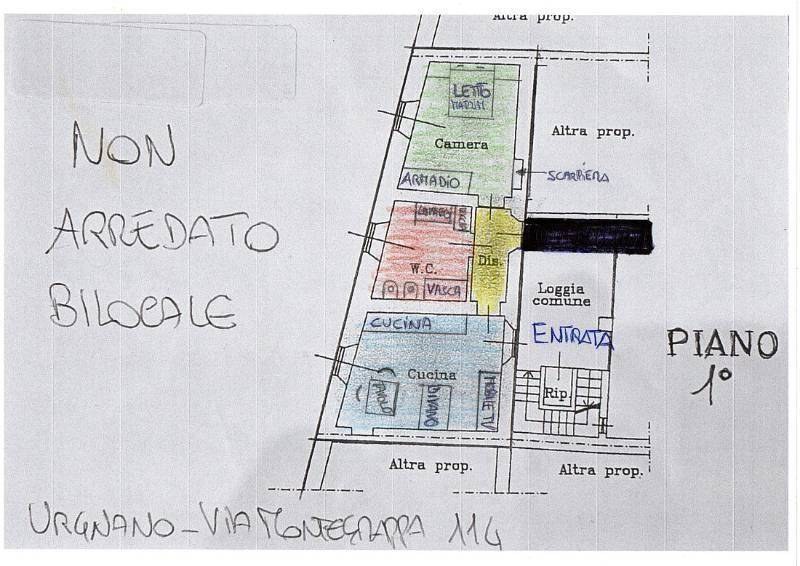 Altra prop.
NON
ARREDATO
BILOCALE
LETTO
MATRIM
Camera
Altra prop.
ARMADIO
SCARPIERA
LAVABO
W.C.
VASCA
Dis.
Loggia
comune
CUCINA
ENTRATA
PIANO
1°
Cucina
TAVOLO
DIVANO
MOBILE TV
Rip.
Altra prop.
Altra prop.
URGNANO - VIA MONTEGRAPPA 114